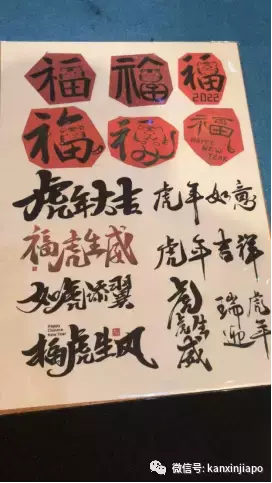 福 福 福
2022
福 福 福
HAPPY NEW YEAR
虎年大吉
虎年如意
福虎生威
虎年吉祥
如虎添翼
虎虎生威
瑞迎虎年
Happy
Chinese
New Year
福虎生风
微信号: kanxinjiapo